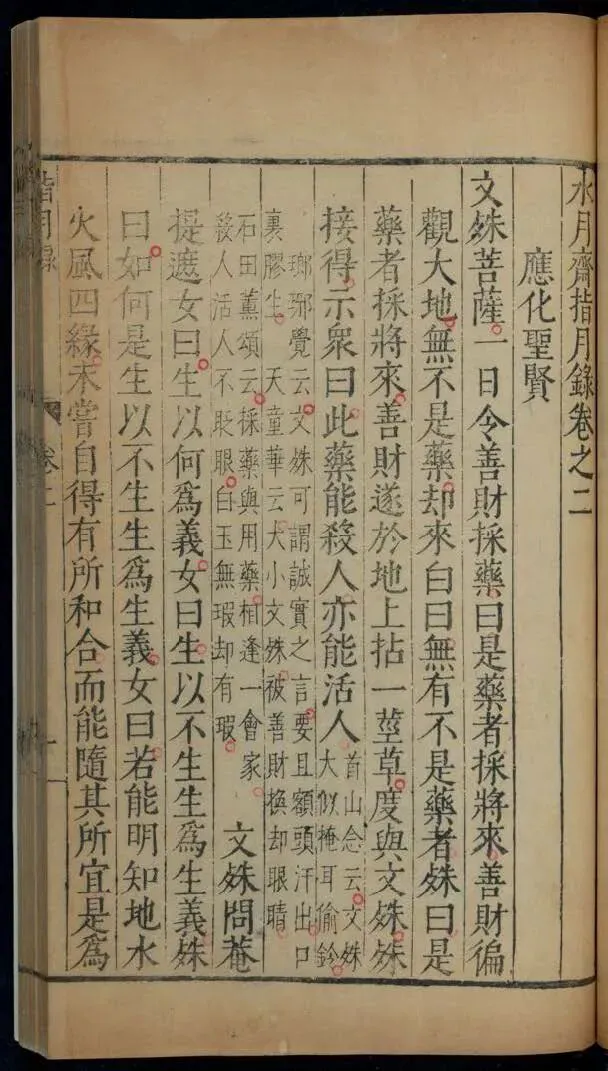 水月齋指月錄卷之二
應化聖賢
文殊菩薩一日令善財採藥曰是藥者採將來善財徧
觀大地無不是藥却來白曰無有不是藥者殊曰是
藥者採將來善財遂於地上拈一莖草度與文殊殊
接得示衆曰此藥能殺人亦能活人
首山念云文殊
大似掩耳偷鈴
瑯琊覺云文殊可謂誠實之言要且額頭汗出口
裏膠生 天童華云大小文殊被善財換却眼睛
石田薰頌云採藥與用藥相逢一會家
殺人活人不眨眼白玉無瑕却有瑕
文殊問菴
提遮女曰生以何爲義女曰生以不生生爲生義殊
曰如何是生以不生生爲生義女曰若能明知地水
火風四緣未嘗自得有所和合而能隨其所宜是爲
指月錄 卷二 一